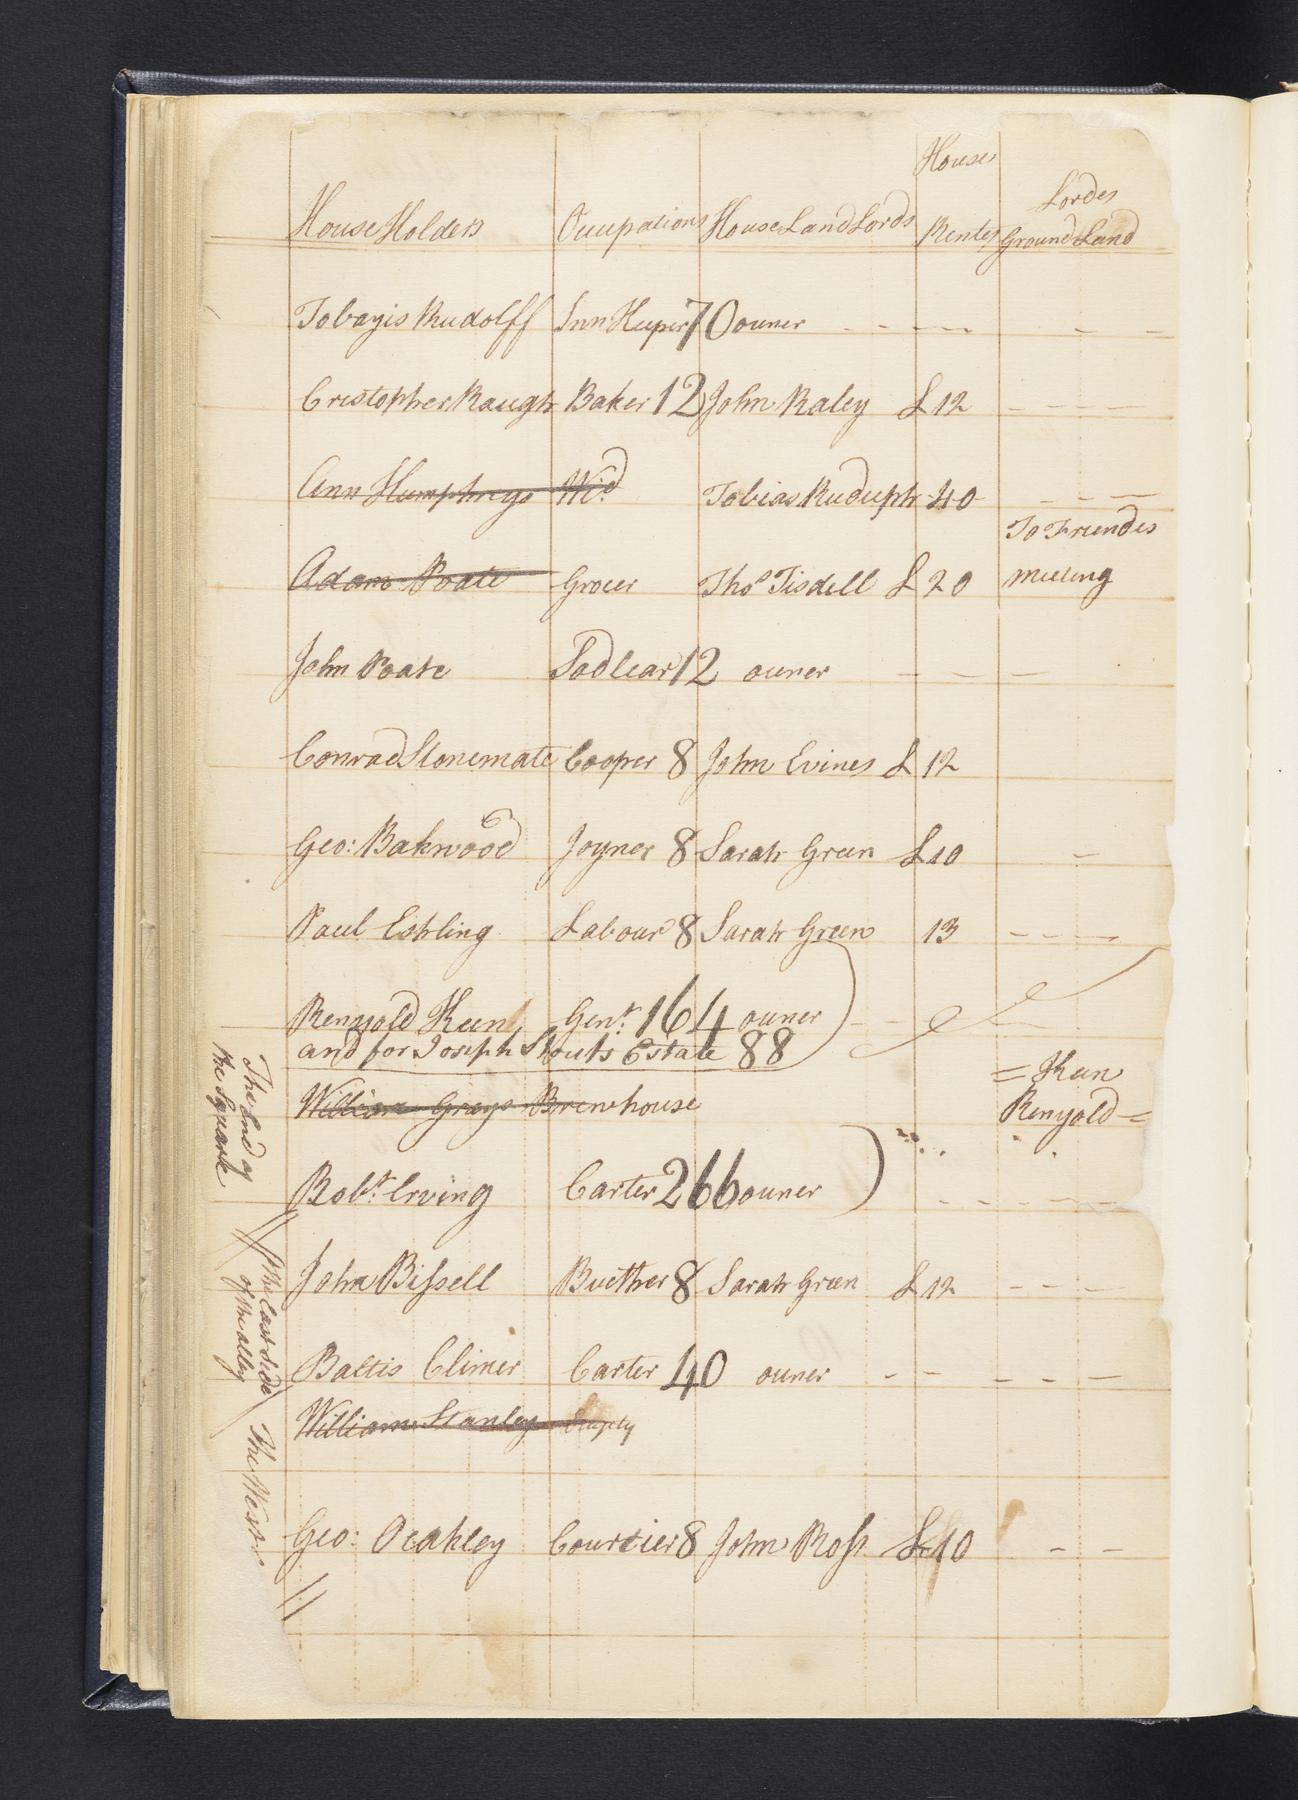 House Holders Ocupations House Land Lords House Rentes Ground Land Lordes
Tobayis Rudolff Inn Keeper 70 owner - - - - - -
Cristopher Raugh Baker 12 John Raley £ 12 - - - -
Ann Humphreys Wid Tobias Ruduph 40 - - -
Adam Poate Grocer Thos Tisdell £ 20 To Friendes meeting
John Poate Sadlear 12 owner - - -
Conrad Stonemate Cooper 8 John Evines £ 12
Geo: Bakwood Joyner 8 Sarah Green £ 10 -
Paul Eshling Labour 8 Sarah Green 13 - - -
Renyold Keen Gent: 164 owner
and for Joseph Stouts Estate 88
= Keen
William Grays Brewhouse Renyold =
Robt: Erving Carter 266 owner - - - - - -
John Bissell Buether 8 Sarah Green £ 12 - - -
Baltis Climer Carter 40 owner - - - - - -
William Stanley Empty
Geo: Oeakley Courtier 8 John Ross £ 10 - -
The End of
the Square
The East Side
of the alley
The West